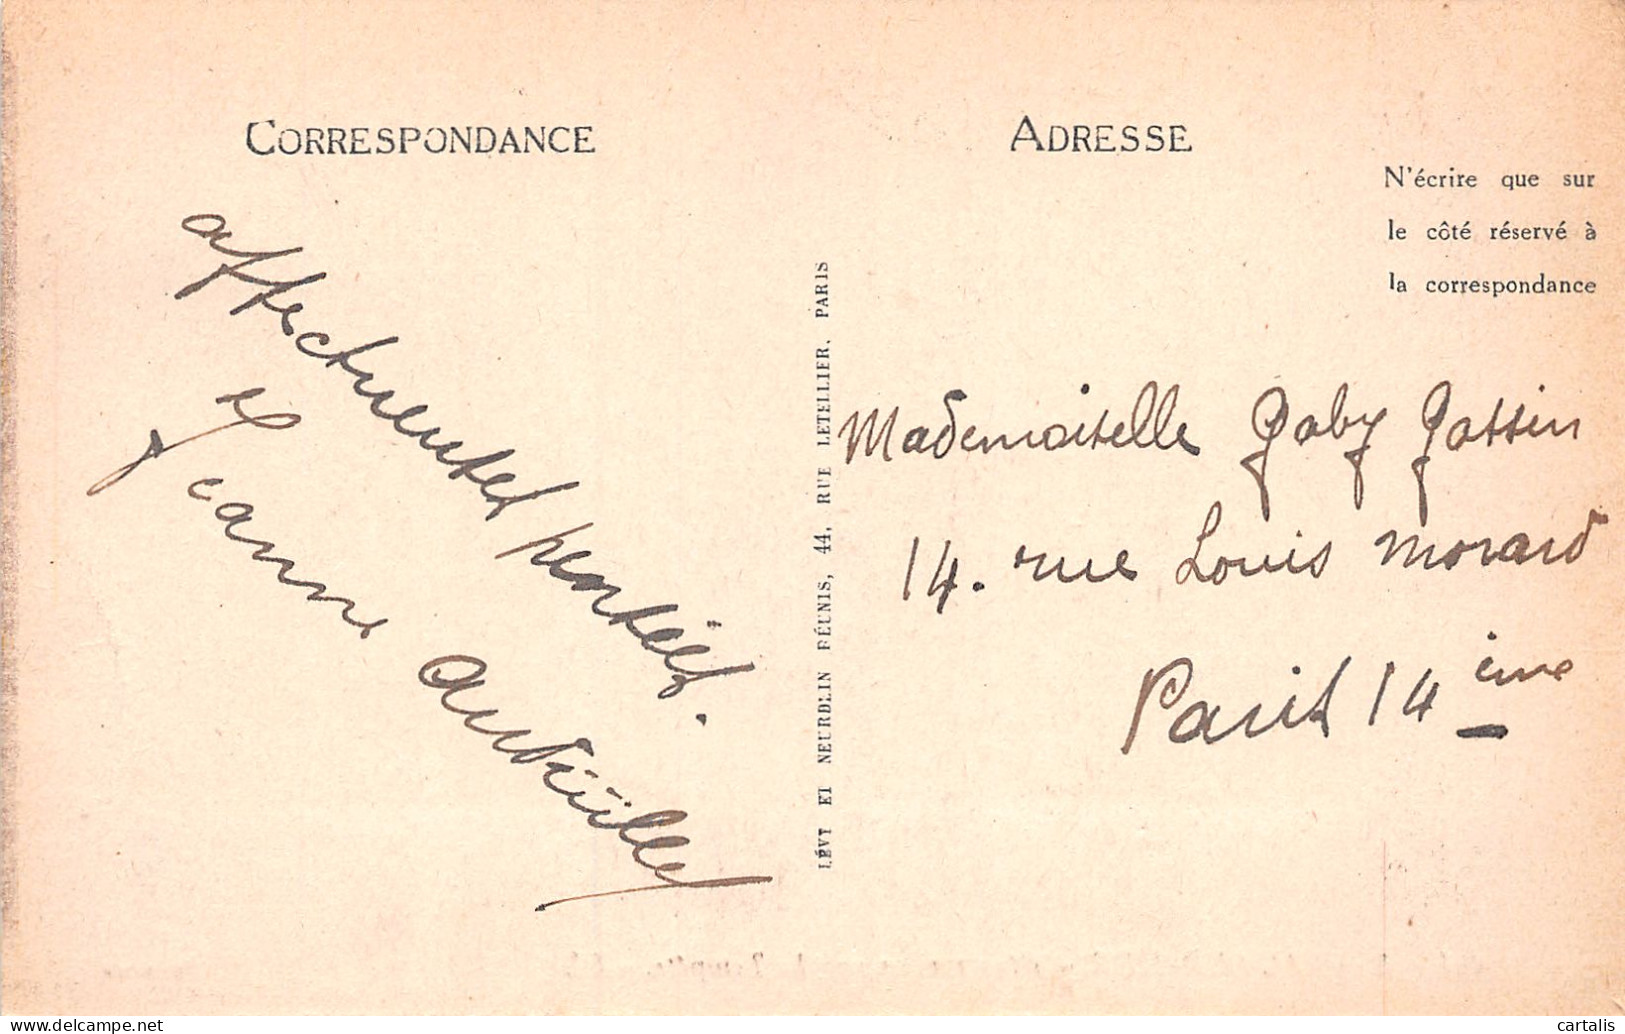 CORRESPONDANCE
affectueuses pensées.
Jeanne
ADRESSE
N'écrire que sur
le côté réservé à
la correspondance
LÉVY ET NEURDEIN RÉUNIS, 44, RUE LETELLIER, PARIS
Mademoiselle Gaby Gassin
14. rue Louis Morard
Paris 14 ème
delcampe.net
cartalis